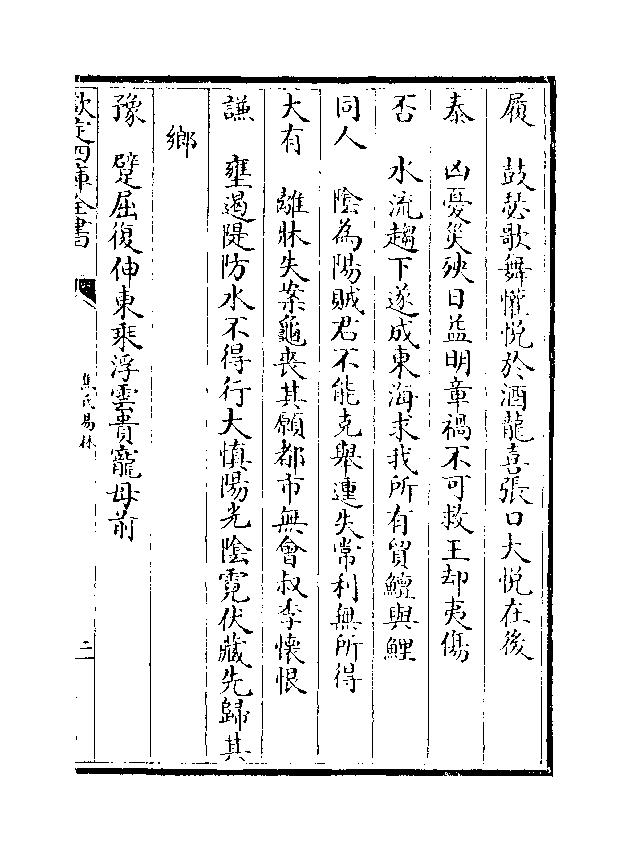 履　鼓瑟歌舞懽悦於酒龍喜張口大悦在後
泰　凶憂災殃日益明章禍不可救王却夷傷
否　水流趨下遂成東海求我所有貿鱣與鯉
同人　陰為陽賊君不能克舉連失常利無所得
大有　離牀失案龜喪其願都市無會叔季懐恨
謙　壅遏隄防水不得行大慎陽光陰霓伏藏先歸其
鄉
豫　躄屈復伸東乘浮雲貴寵母前
欽定四庫全書
焦氏易林
二